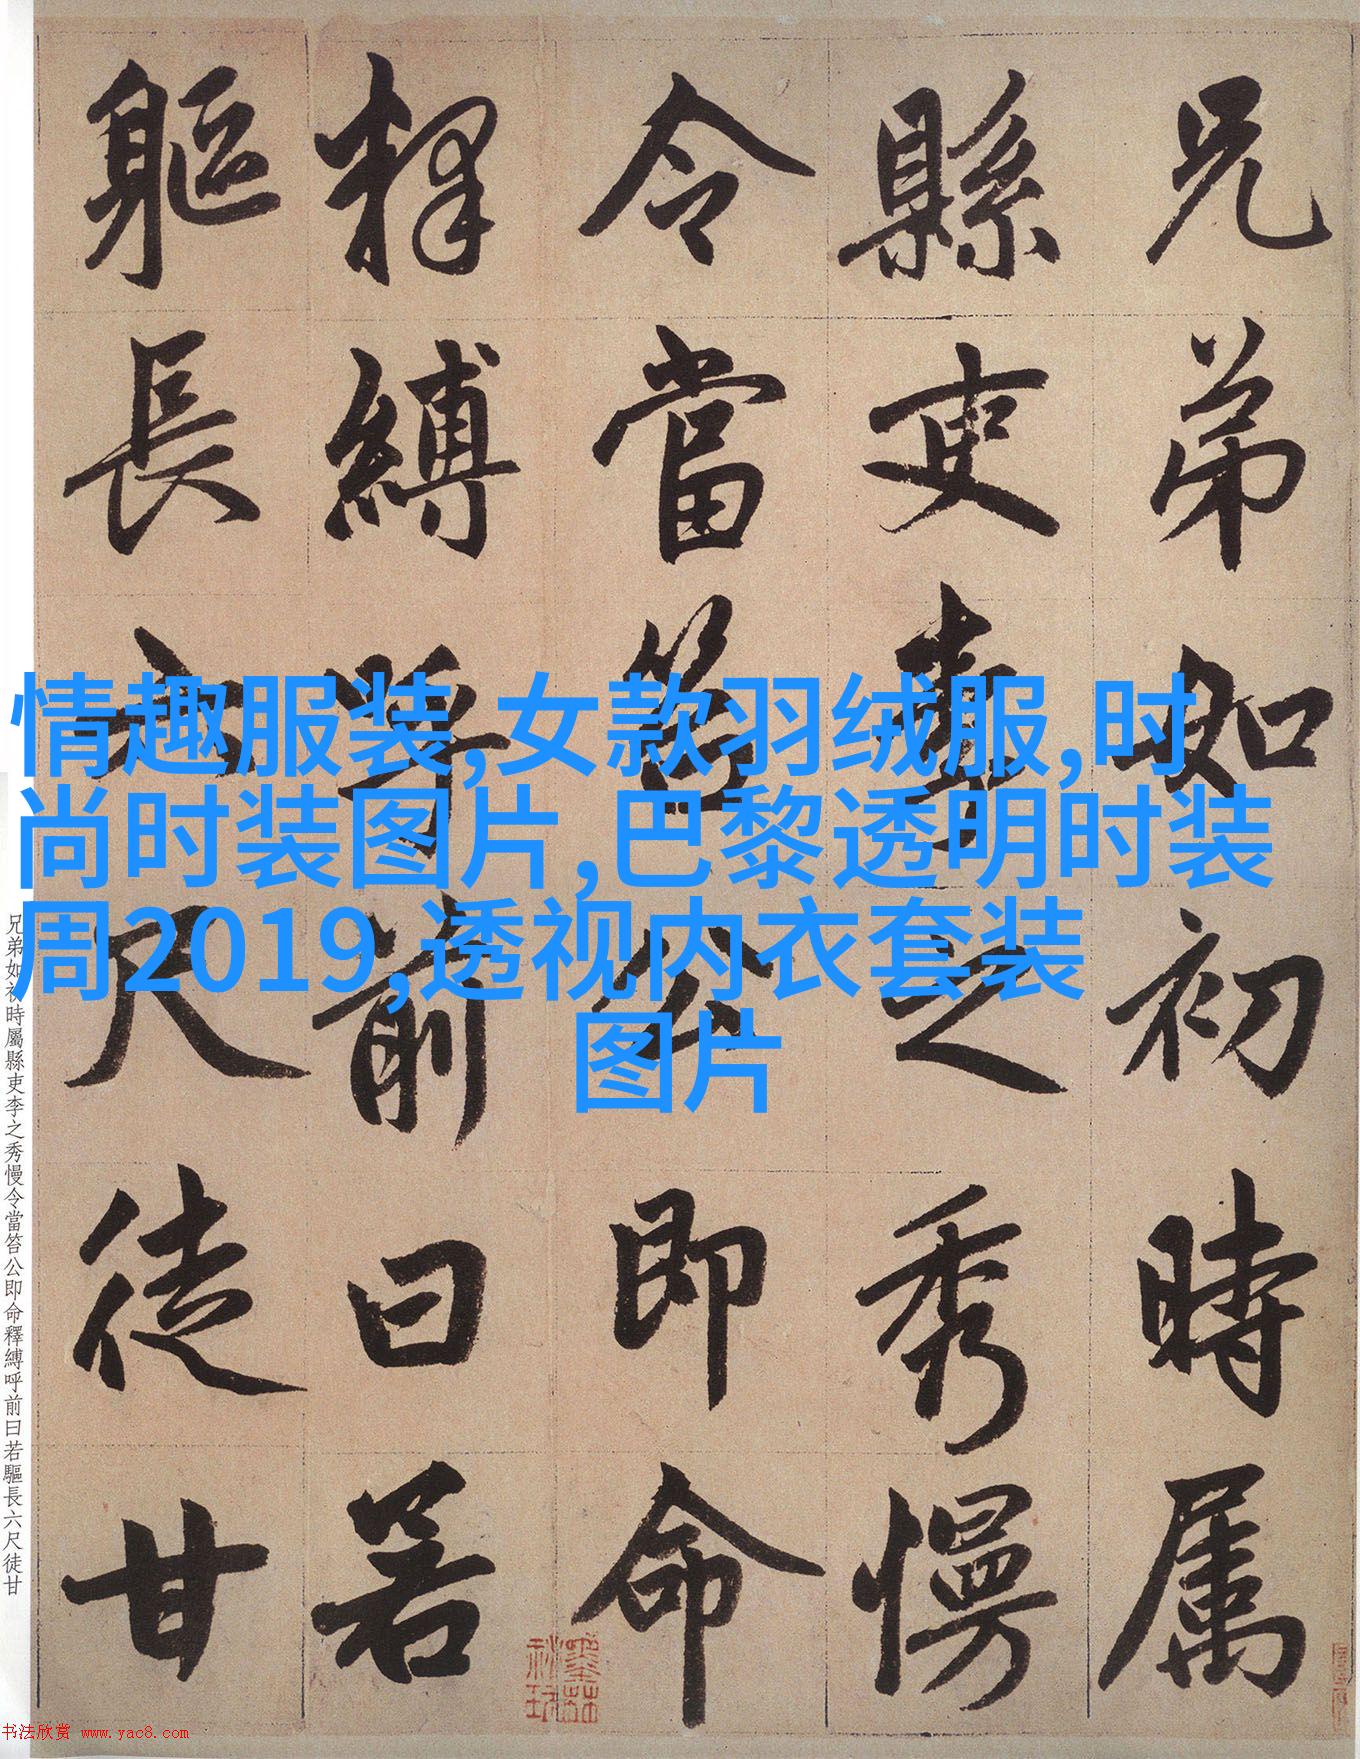 兄弟如初時属
縣吏李之秀慢
令當笞公即命
釋縛呼前曰若
軀長六尺徒甘
情趣服装,女款羽绒服,时
尚时装图片,巴黎透明时装
周2019,透视内衣套装
图片
兄弟如初時屬縣吏李之秀慢令當笞公即命釋縛呼前曰若驅長六尺徒甘
书法欣赏 www.yac8.com